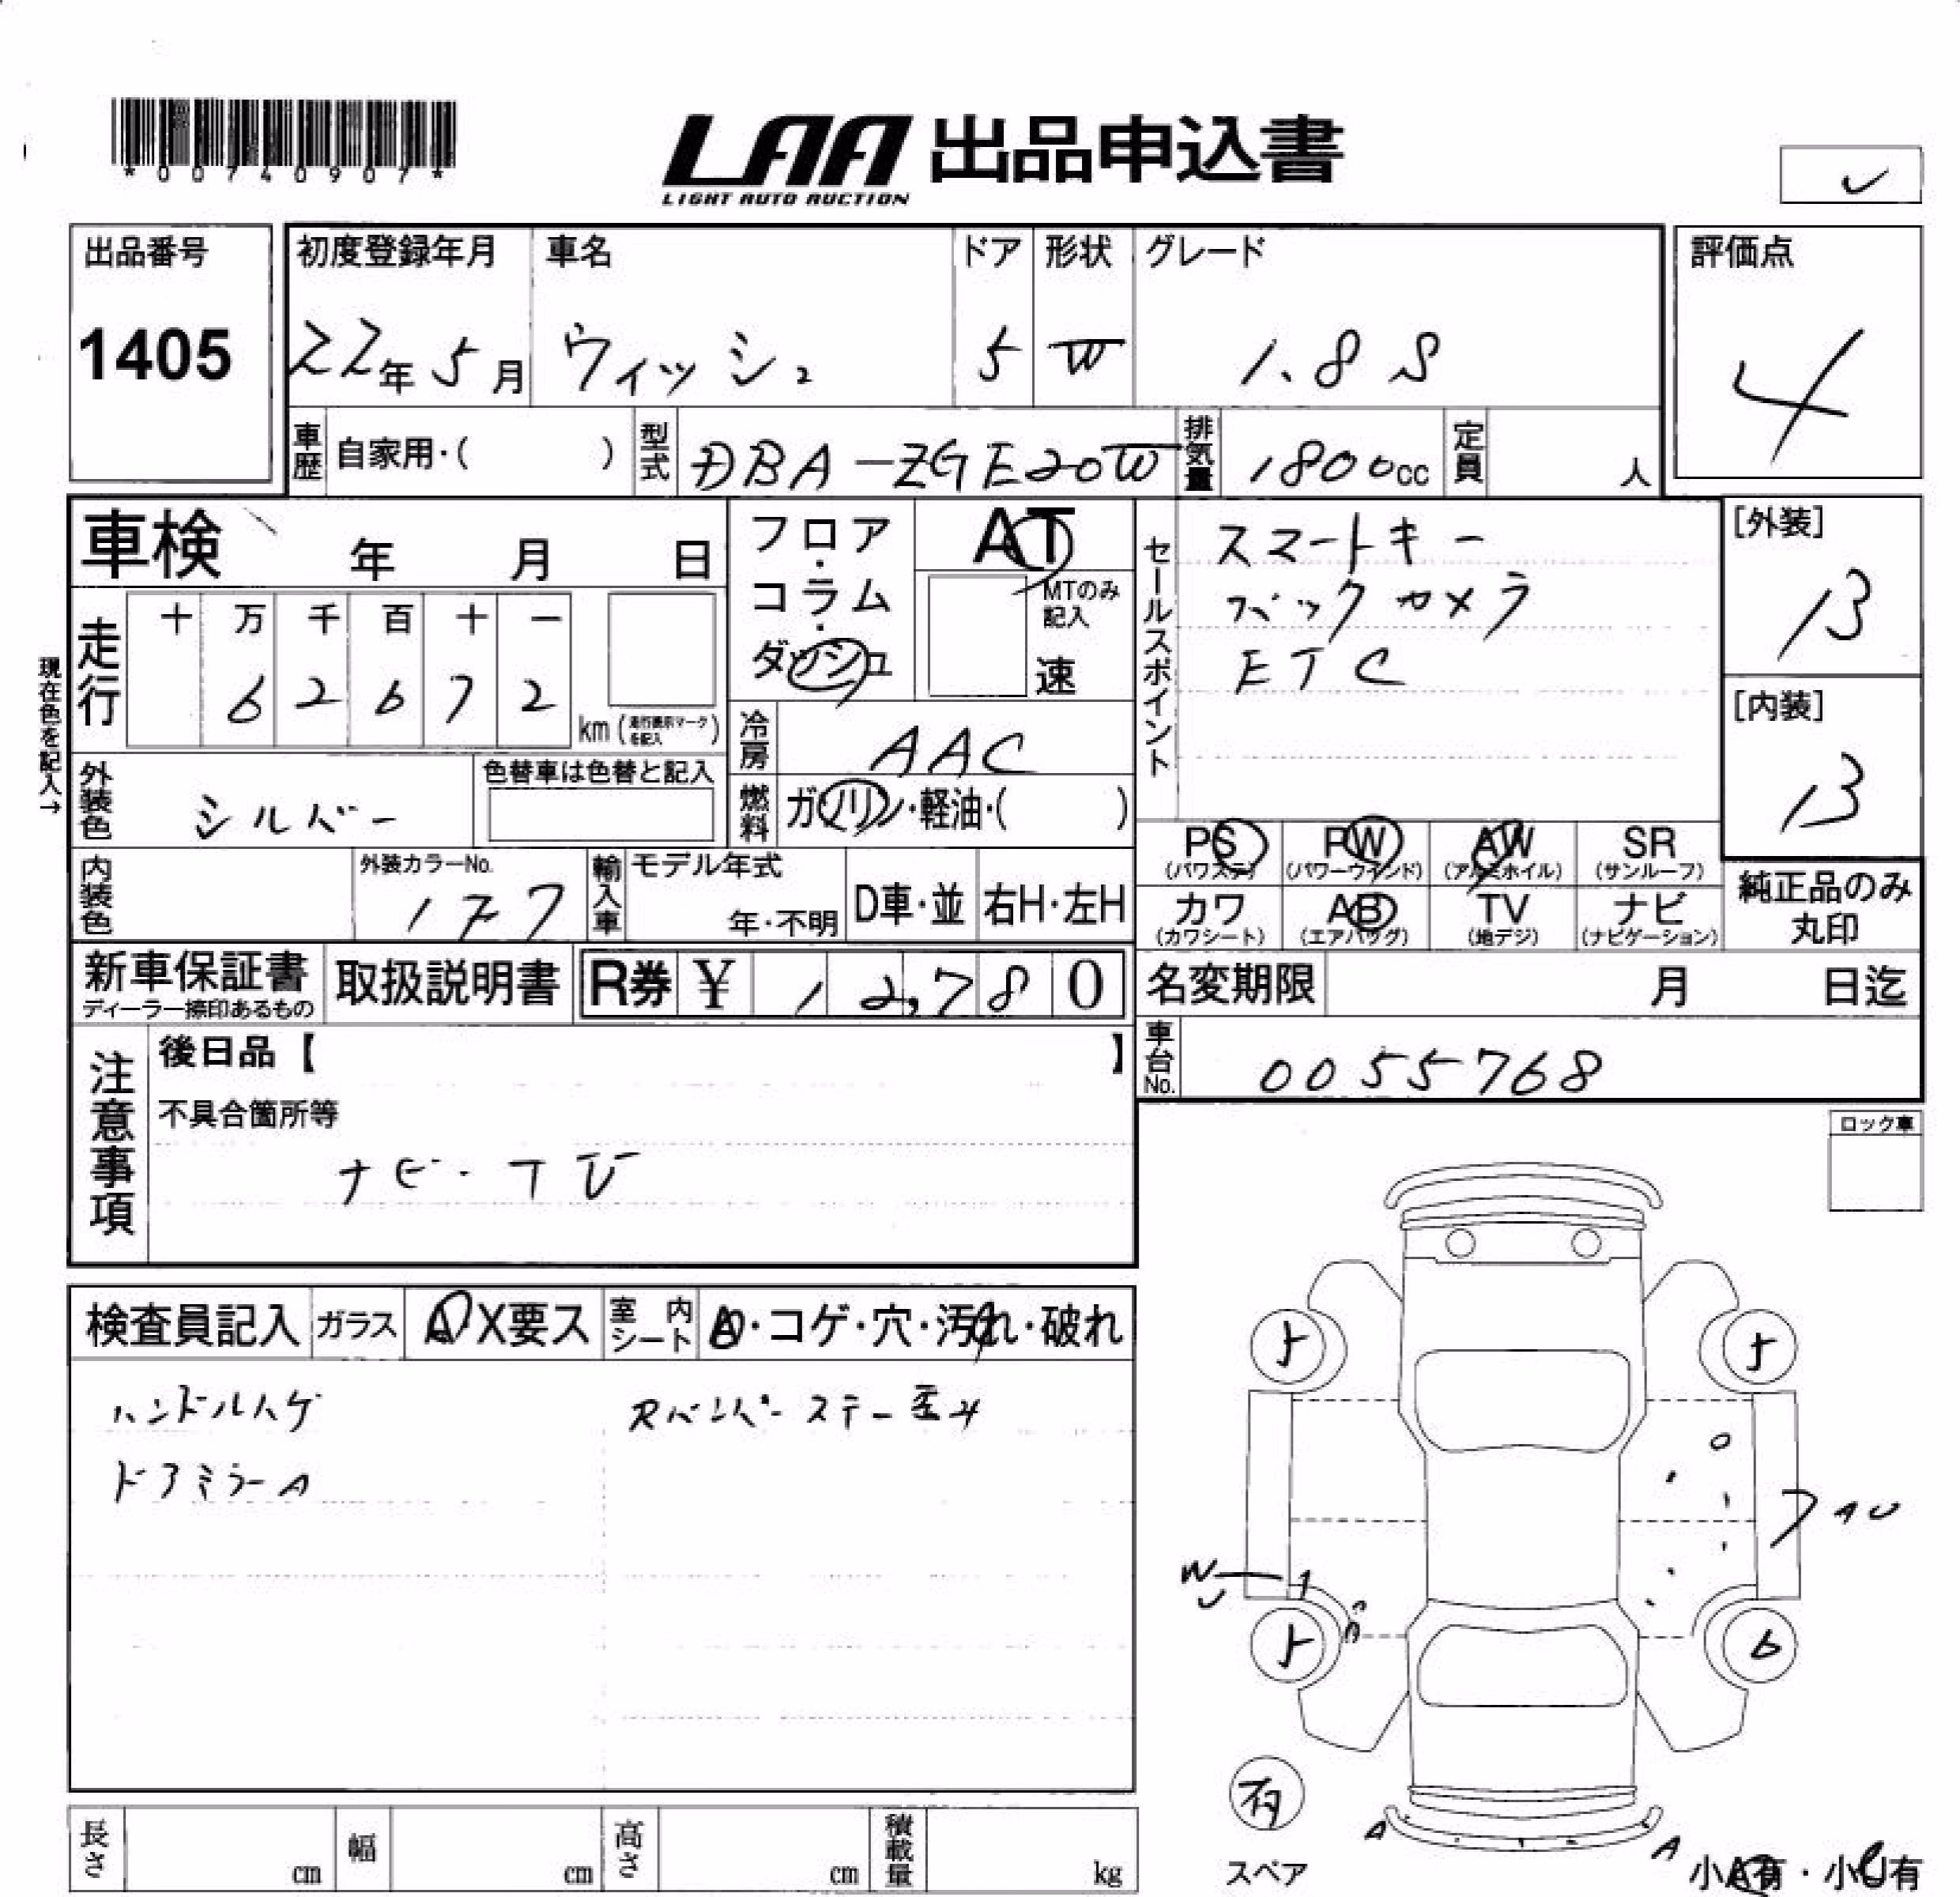 *00740907*
LAA 出品申込書
LIGHT AUTO AUCTION
出品番号
1405
初度登録年月
22年5月
車名
ウィッシュ
ドア
5
形状
W
グレード
1.8S
評価点
4
車歴 自家用・( )
型式 DBA-ZGE20W
排気量 1800cc
定員 人
車検 年 月 日
フロア・コラム・ダッシュ
AT
MTのみ記入
速
セールスポイント
スマートキー
バックカメラ
ETC
[外装]
13
[内装]
13
現在色を記入→
走行
十 万 千 百 十 一
6 2 6 7 2
km (走行表示マークを記入)
冷房 AAC
燃料 ガソリン・軽油・( )
外装色 シルバー
色替車は色替と記入
内装色
外装カラーNo.
177
輸入車
モデル年式
年・不明
D車・並
右H・左H
PS (パワステ)
PW (パワーウインド)
AW (アルミホイル)
SR (サンルーフ)
カワ (カワシート)
AB (エアバッグ)
TV (地デジ)
ナビ (ナビゲーション)
純正品のみ
丸印
新車保証書
ディーラー捺印あるもの
取扱説明書
R券 ¥ 12,780
名変期限 月 日迄
車台No. 0055768
注意事項
後日品【 】
不具合箇所等
ナビ・TV
ロック車
検査員記入
ガラス A X要ス
室内シート A・コゲ・穴・汚れ・破れ
ハンドルハゲ
ドアミラーA
Rバンパーステー歪み
AU
W
U
6
A
A
有
スペア
小A有・小U有
長さ cm
幅 cm
高さ cm
積載量 kg